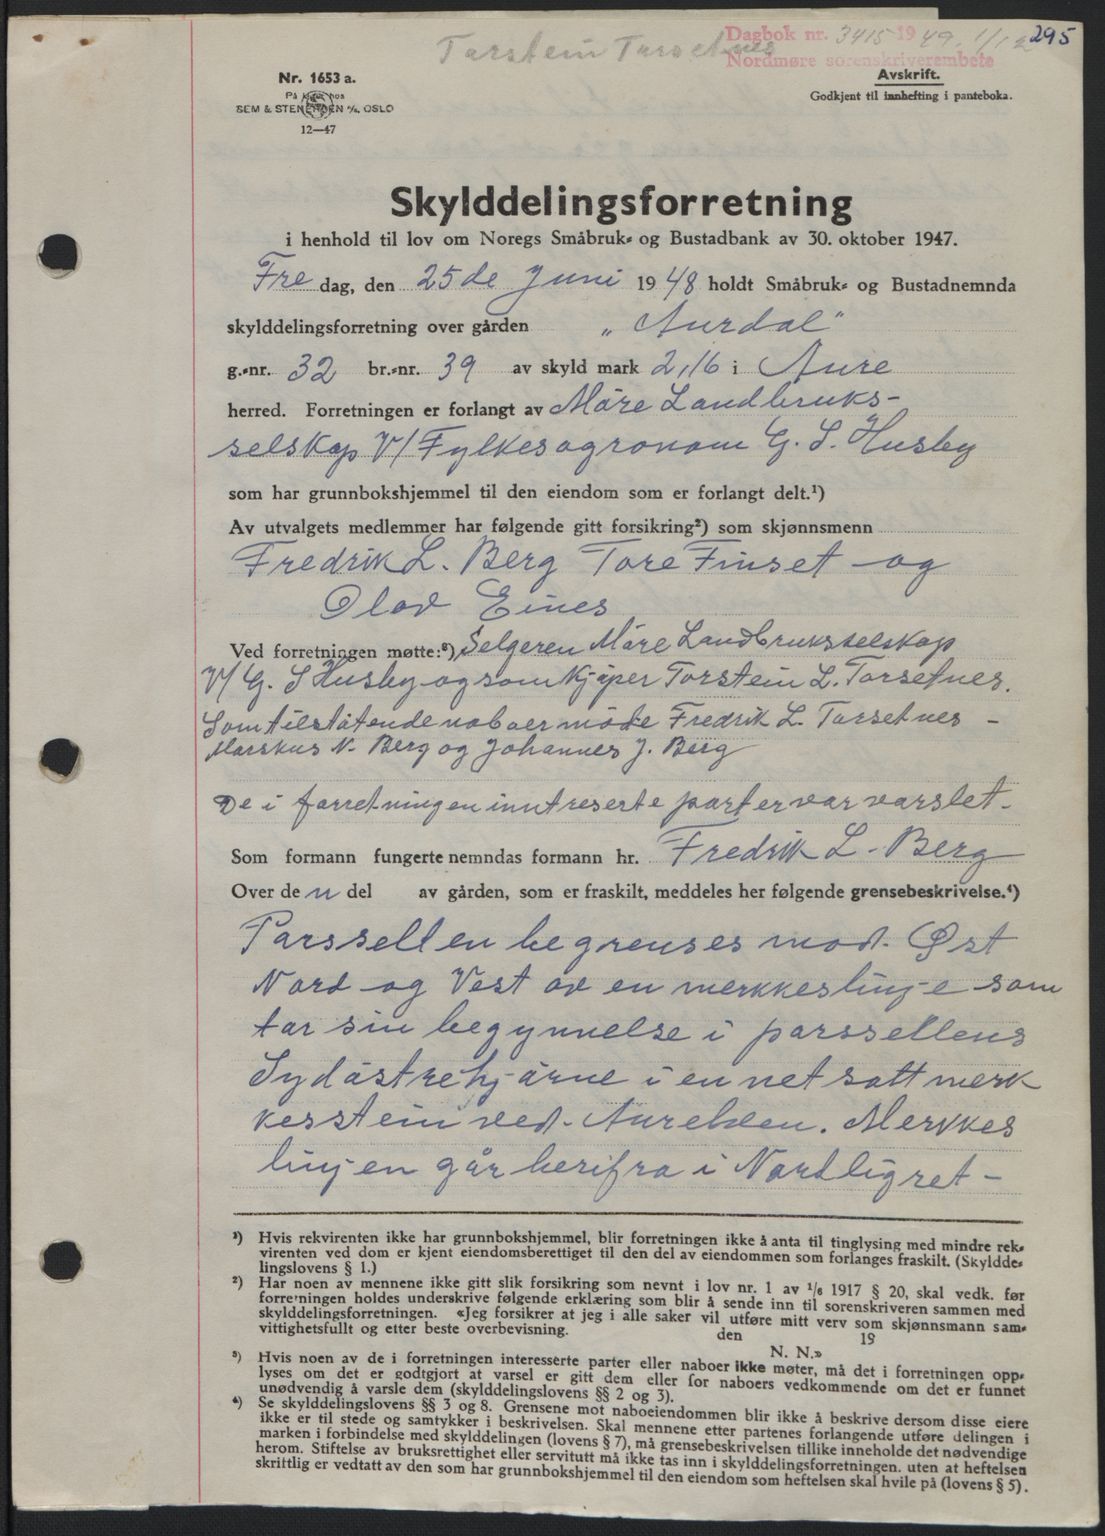 Torstein Torsetnes
Dagbok nr. 3415 1949. 1/12 295
Nordmøre sorenskriverembete
Nr. 1653 a.
På lager hos
SEM & STENERSEN A/S, OSLO
12—47
Avskrift.
Godkjent til innhefting i panteboka.
Skylddelingsforretning
i henhold til lov om Noregs Småbruk- og Bustadbank av 30. oktober 1947.
Fre dag, den 25de Juni 1948 holdt Småbruk- og Bustadnemnda
skylddelingsforretning over gården „Aurdal"
g.-nr. 32 br.-nr. 39 av skyld mark 2,16 i Aure
herred. Forretningen er forlangt av Møre Landbruks-
selskap V/ Fylkesagronom G. S. Husby
som har grunnbokshjemmel til den eiendom som er forlangt delt.¹)
Av utvalgets medlemmer har følgende gitt forsikring²) som skjønnsmenn
Fredrik L. Berg Tore Finset og
Olav Eines
Ved forretningen møtte:³) Selgeren Møre Landbruksselskap
V/ G. S Husby og som kjøper Torstein L. Torsetnes.
Som tilstøtende naboer møde Fredrik L. Torsetnes -
Marskus N. Berg og Johannes J. Berg
De i forretningen inntreserte parter var varslet.
Som formann fungerte nemndas formann hr. Fredrik L. Berg
Over de n del av gården, som er fraskilt, meddeles her følgende grensebeskrivelse.⁴)
Parssellen begrenses mod. Øst
Nord og Vest av en merkkeslinje som
tar sin begynnelse i parssellens
Sydøstrehjørne i en net satt merk
kesstein ved. Aurelven. Merkkes
linjen går herifra i Nordligret-
¹) Hvis rekvirenten ikke har grunnbokshjemmel, blir forretningen ikke å anta til tinglysing med mindre rek-
virenten ved dom er kjent eiendomsberettiget til den del av eiendommen som forlanges fraskilt. (Skyldde-
lingslovens § 1.)
²) Har noen av mennene ikke gitt slik forsikring som nevnt i lov nr. 1 av 1/6 1917 § 20, skal vedk. før
forretningen holdes underskrive følgende erklæring som blir å sende inn til sorenskriveren sammen med
skylddelingsforretningen. «Jeg forsikrer at jeg i alle saker vil utføre mitt verv som skjønnsmann sam-
vittighetsfullt og etter beste overbevisning. den 19
N. N.»
³) Hvis noen av de i forretningen interesserte parter eller naboer ikke møter, må det i forretningen opp-
lyses om det er godtgjort at varsel er gitt dem eller for naboers vedkommende om det er funnet
unødvendig å varsle dem (skylddelingslovens §§ 2 og 3).
⁴) Se skylddelingslovens §§ 3 og 8. Grensene mot naboeiendommen blir ikke å beskrive dersom disse eiere
ikke er til stede og samtykker i beskrivelsen. Skal mennene etter partenes forlangende utføre delingen i
marken i forbindelse med skylddelingen (lovens § 7), må grensebeskrivelsen tillike inneholde det nødvendige
herom. Stiftelse av bruksrettighet eller servitutt må ikke tas inn i skylddelingsforretningen. uten at heftelsen
skrittlig er vedtatt av den som har grunnbokshjemmel til den eiendom som heftelsen skal hvile på (lovens § 5).